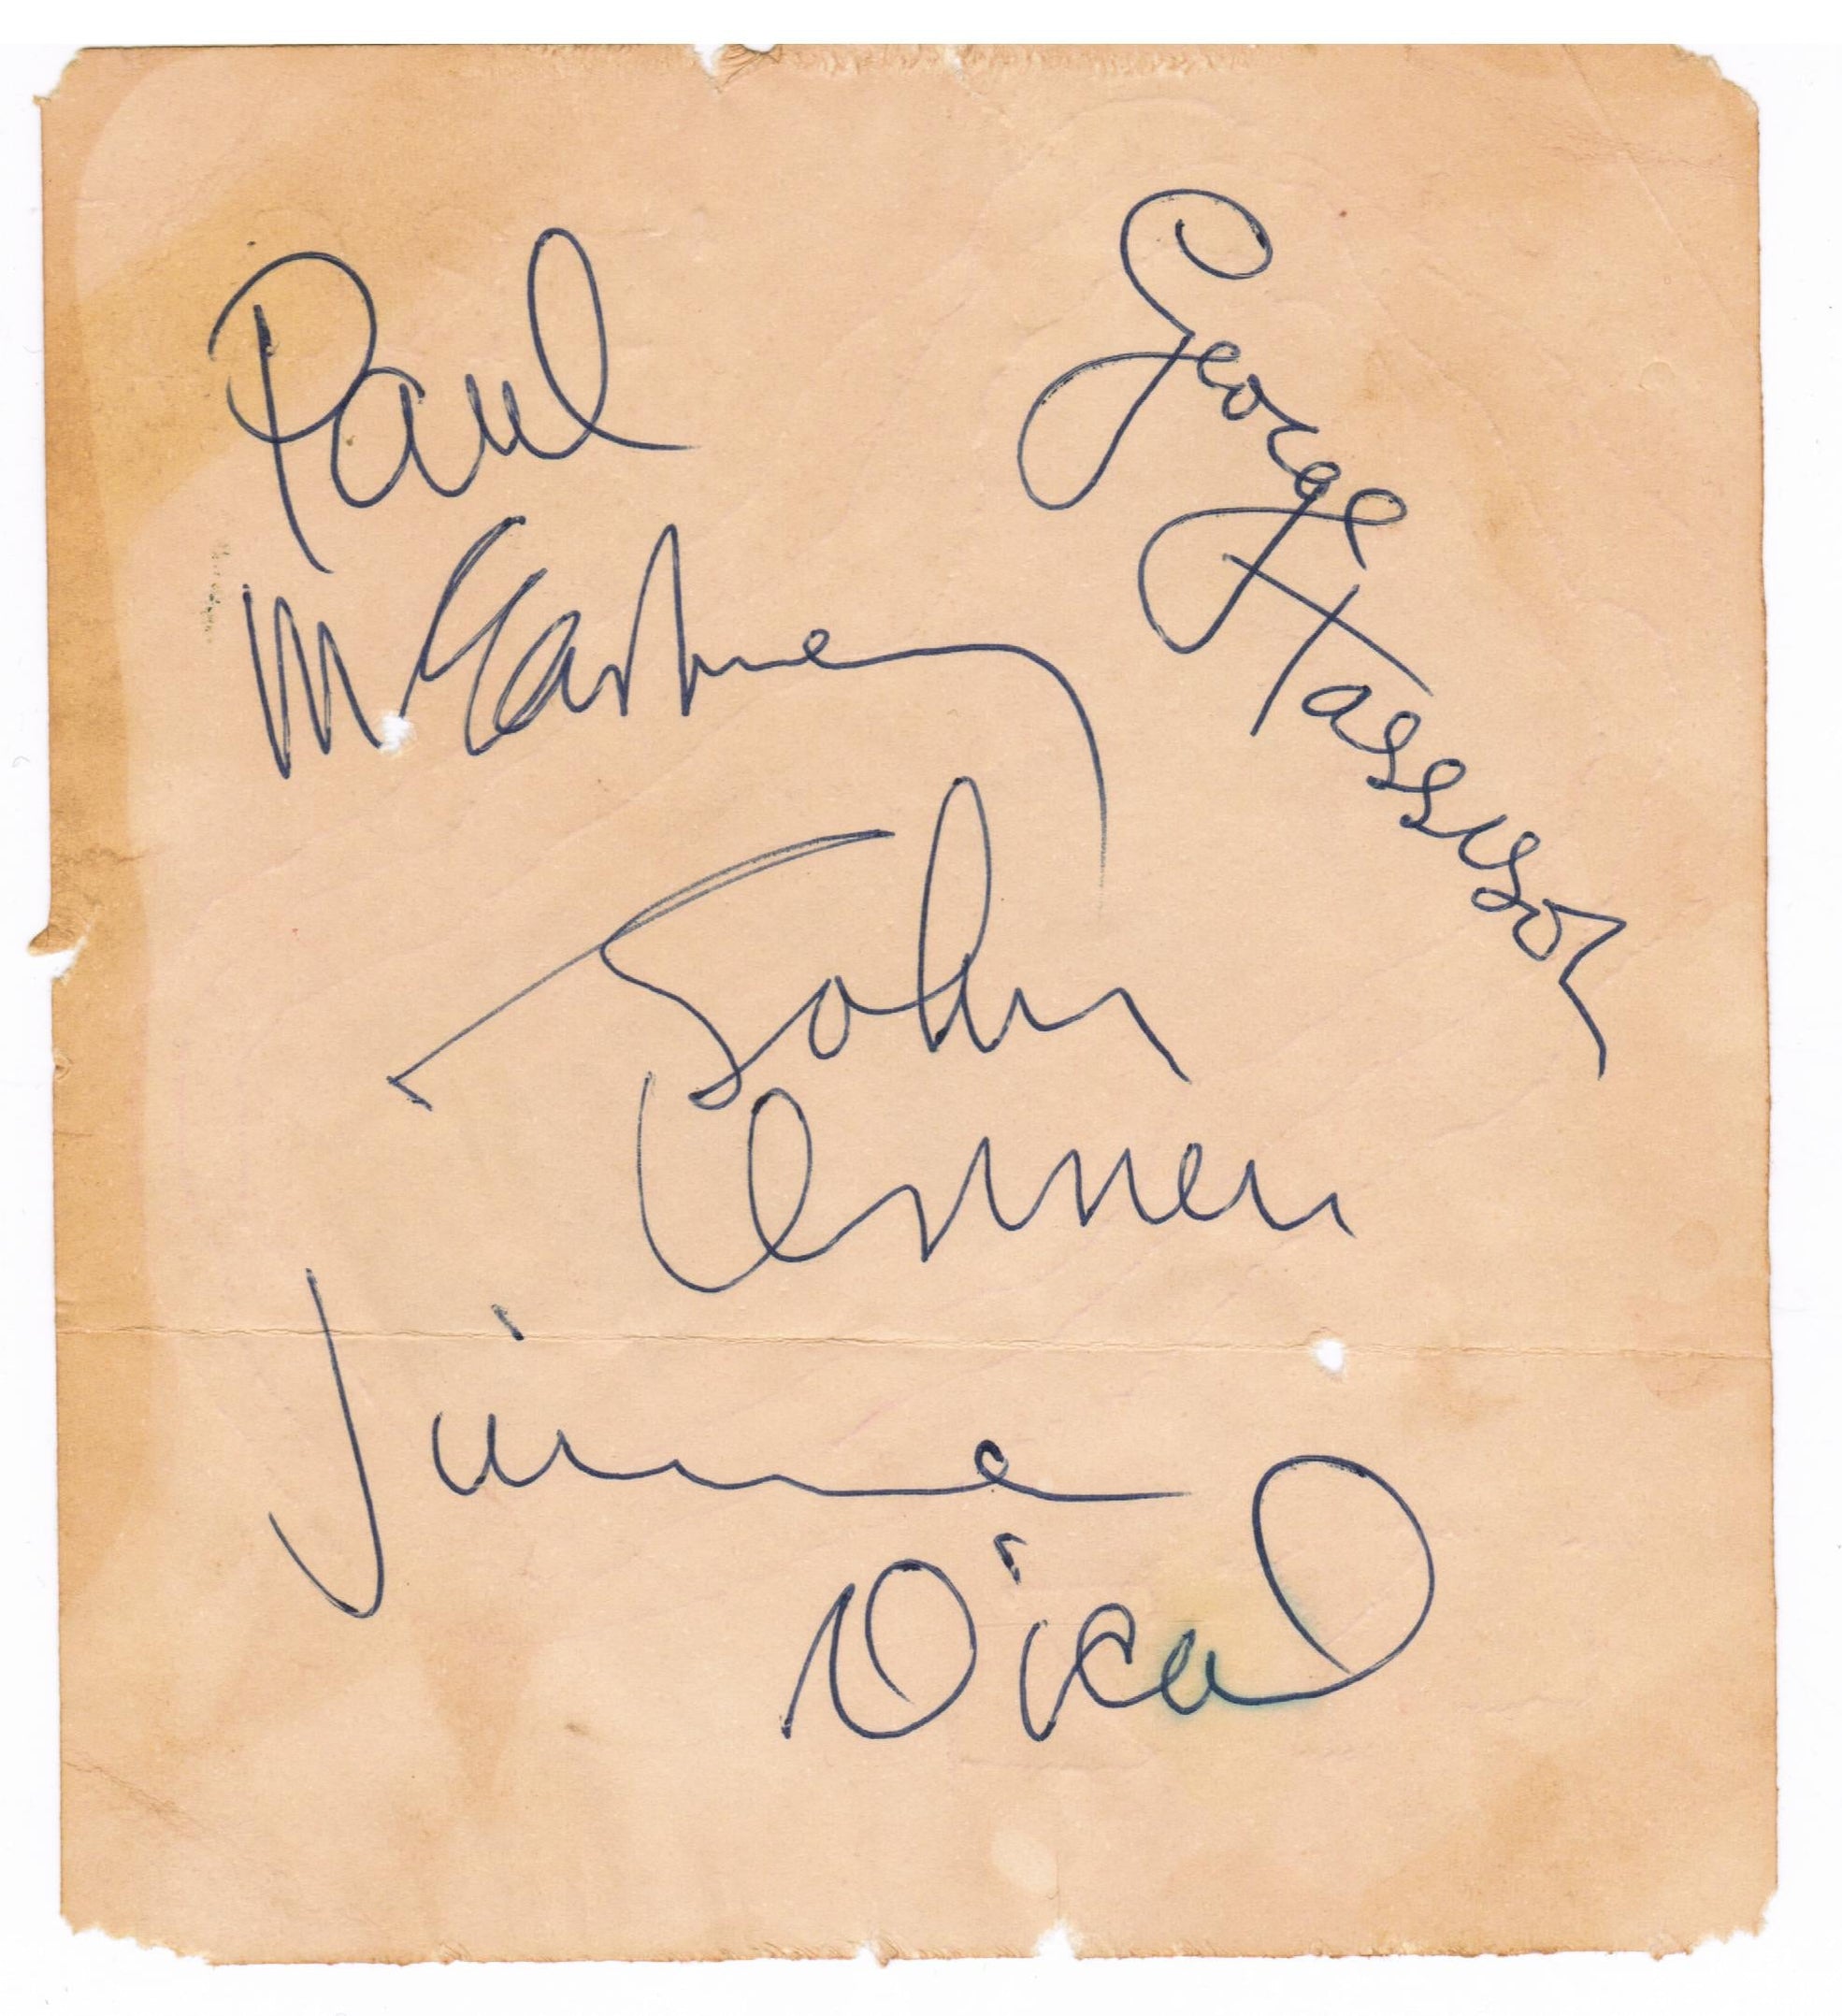 Paul
McCartney
George Harrison
John
Lennon
Jimmie
Nicol